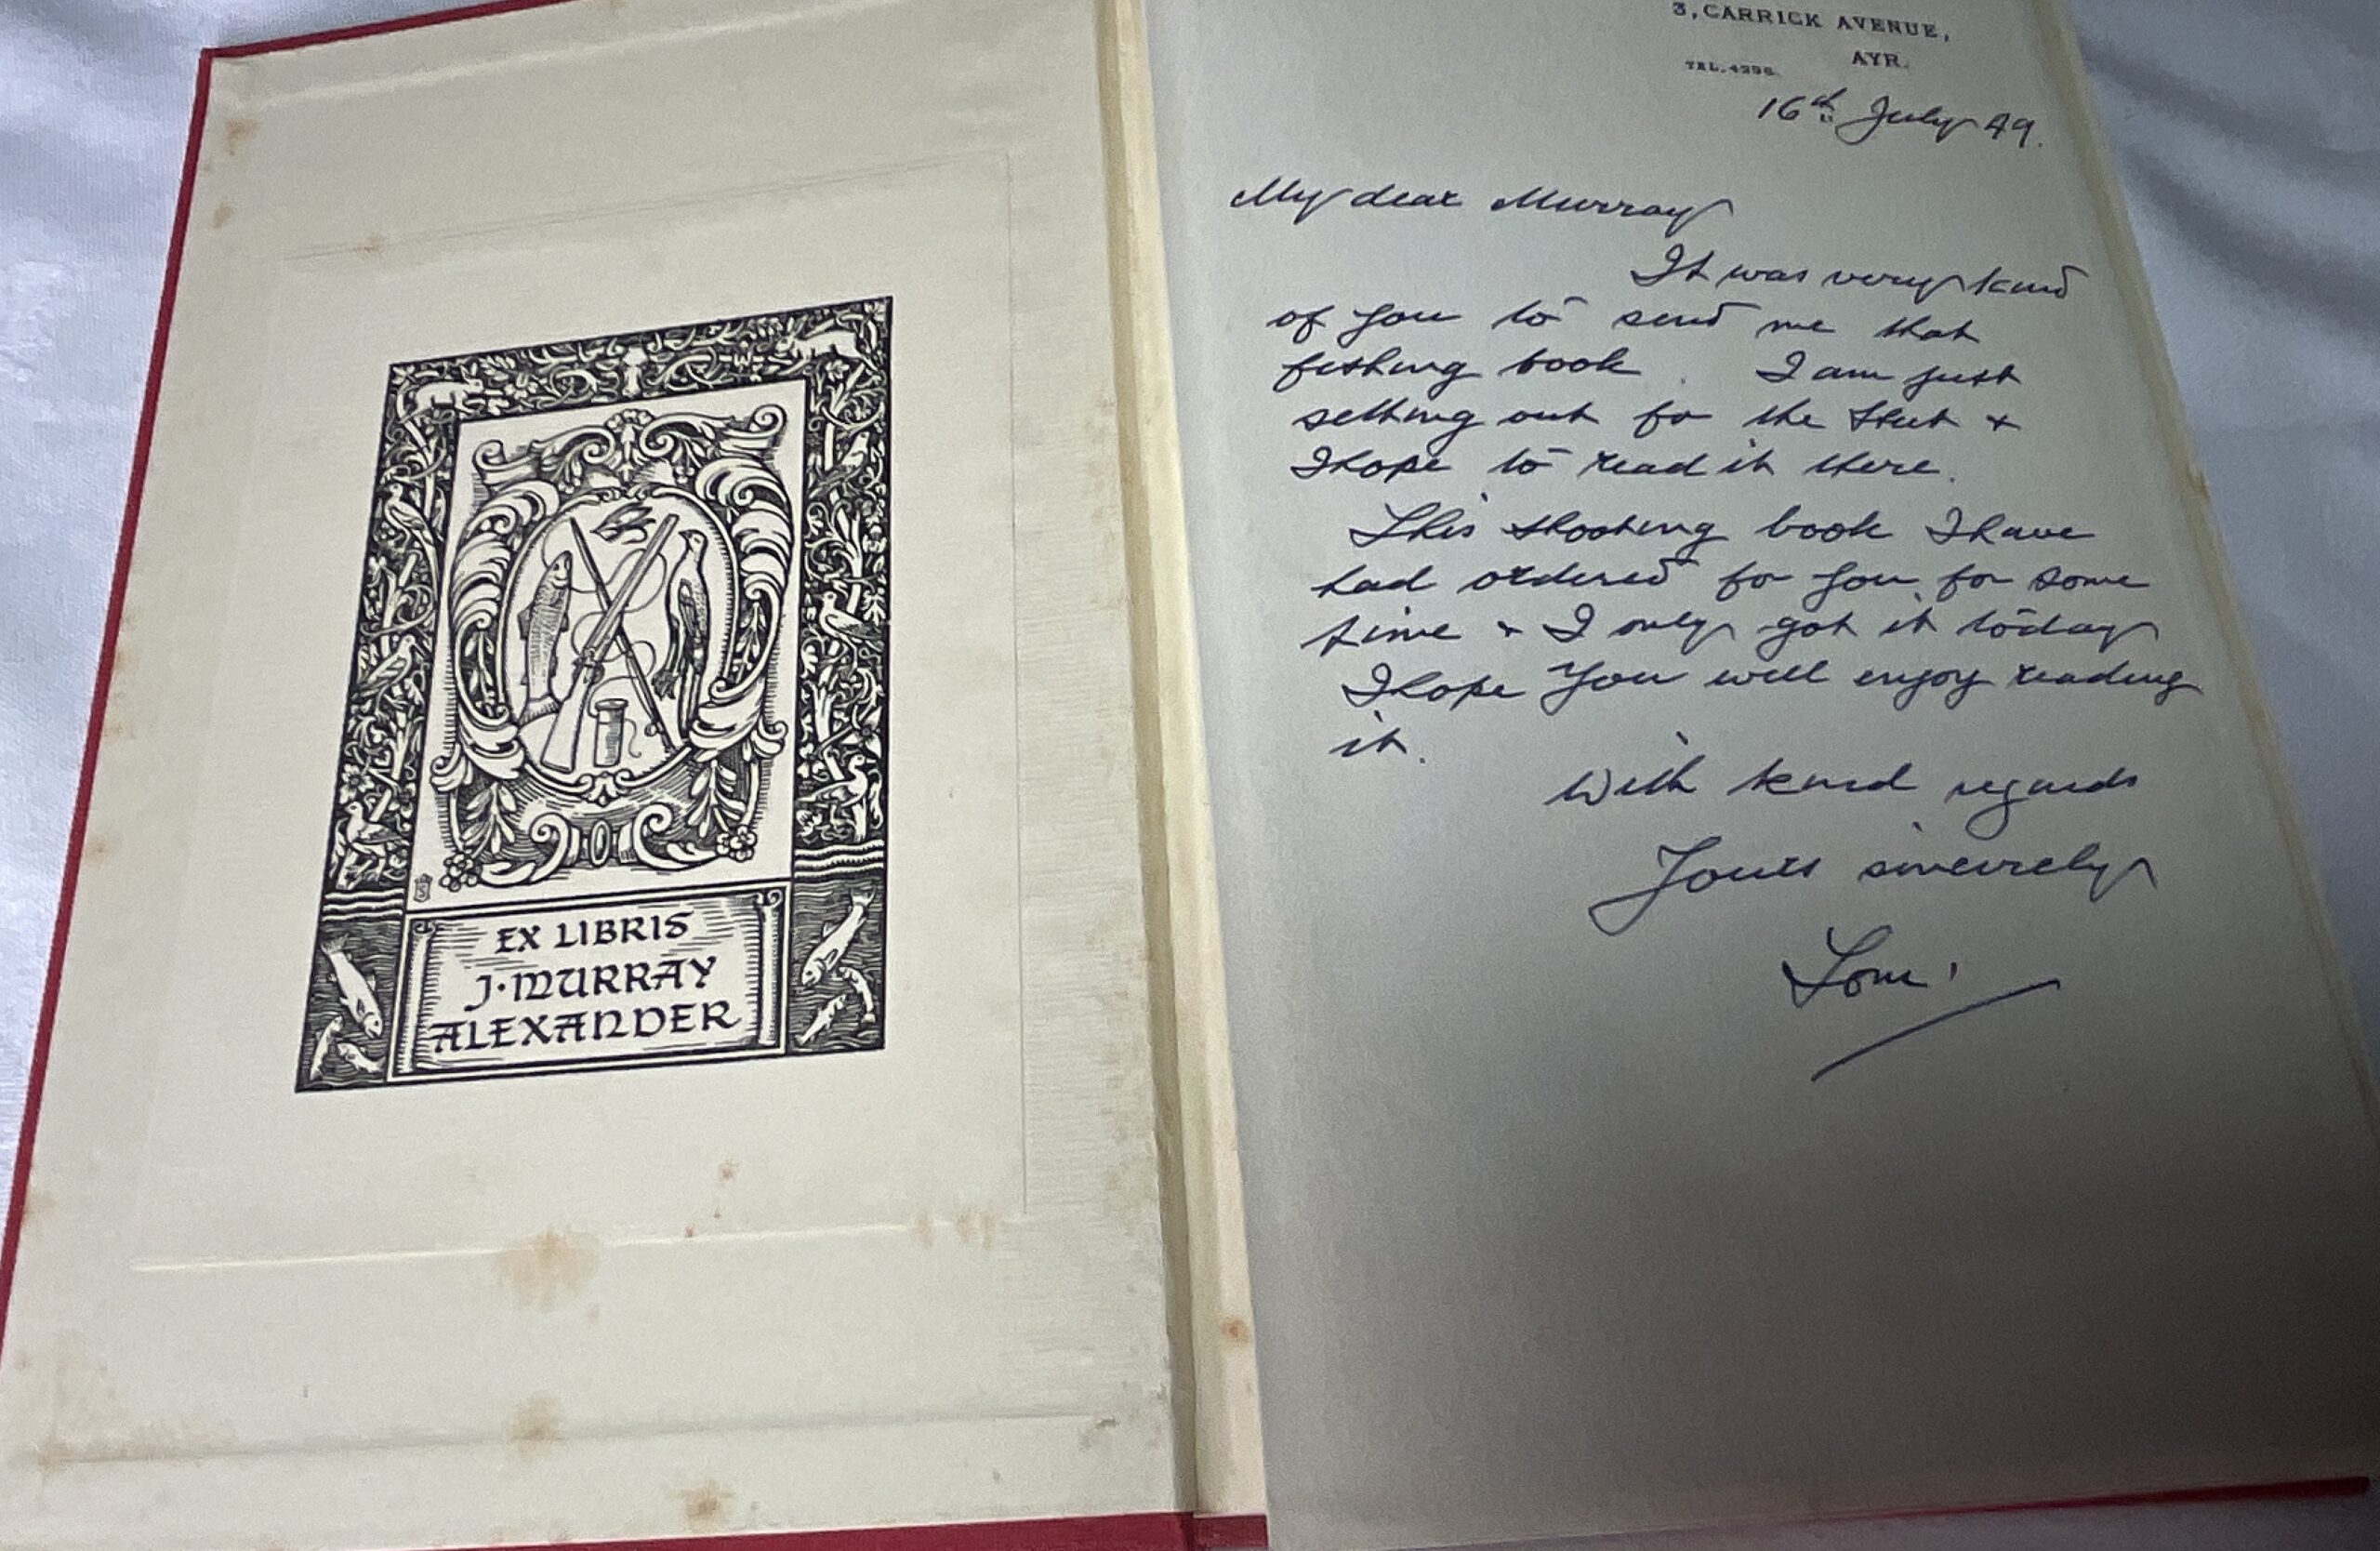 EX LIBRIS
J. MURRAY
ALEXANDER
3, CARRICK AVENUE,
AYR.
TEL. 4296.
16th July 49.
My dear Murray
It was very kind
of you to send me that
fishing book. I am just
setting out for the &
I hope to read it there.
This shooting book I have
had ordered for you for some
time & I only got it today
I hope you will enjoy reading
it.
With kind regards
Yours sincerely